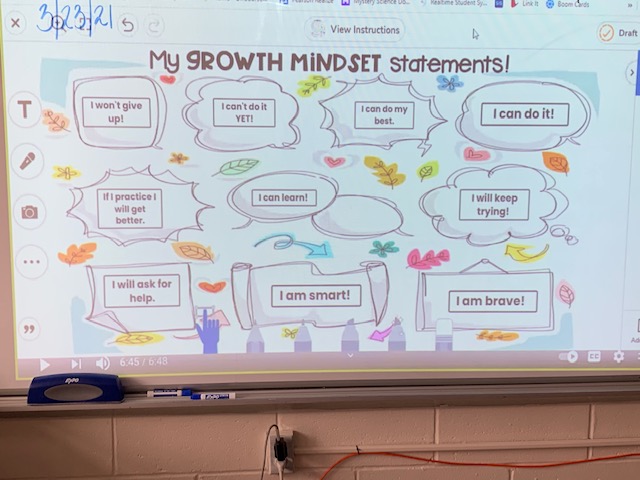 3/23/21
Mystery Science Do...
Realtime Student Sy...
Link It
Boom Cards
View Instructions
Draft
My GROWTH MINDSET statements!
I won't give
up!
I can't do it
YET!
I can do my
best.
I can do it!
If I practice I
will get
better.
I can learn!
I will keep
trying!
I will ask for
help.
I am smart!
I am brave!
T
6:45 / 6:48
CC
EXPO